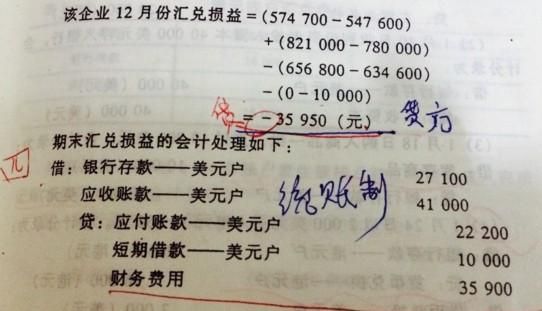 该企业12月份汇兑损益=(574 700-547 600)
+(821 000-780 000)
-(656 800-634 600)
-(0-10 000)
=-35 950（元） 贷方
期末汇兑损益的会计处理如下：
元
借：银行存款——美元户 27 100
应收账款——美元户 41 000
贷：应付账款——美元户 22 200
短期借款——美元户 10 000
财务费用 35 900